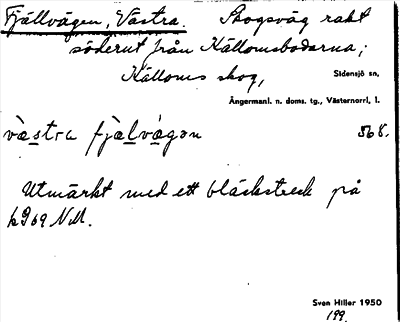 Fjällvägen, Västra. Skogsväg rakt
söderut från Källomsbodarna;
Källoms skog, Sidensjö sn,
Ångermanl. n. doms. tg., Västernorrl. l.
västra fjälvägan 568.
Utmärkt med ett bläckstreck på
k969 NM.
Sven Hiller 1950
199.